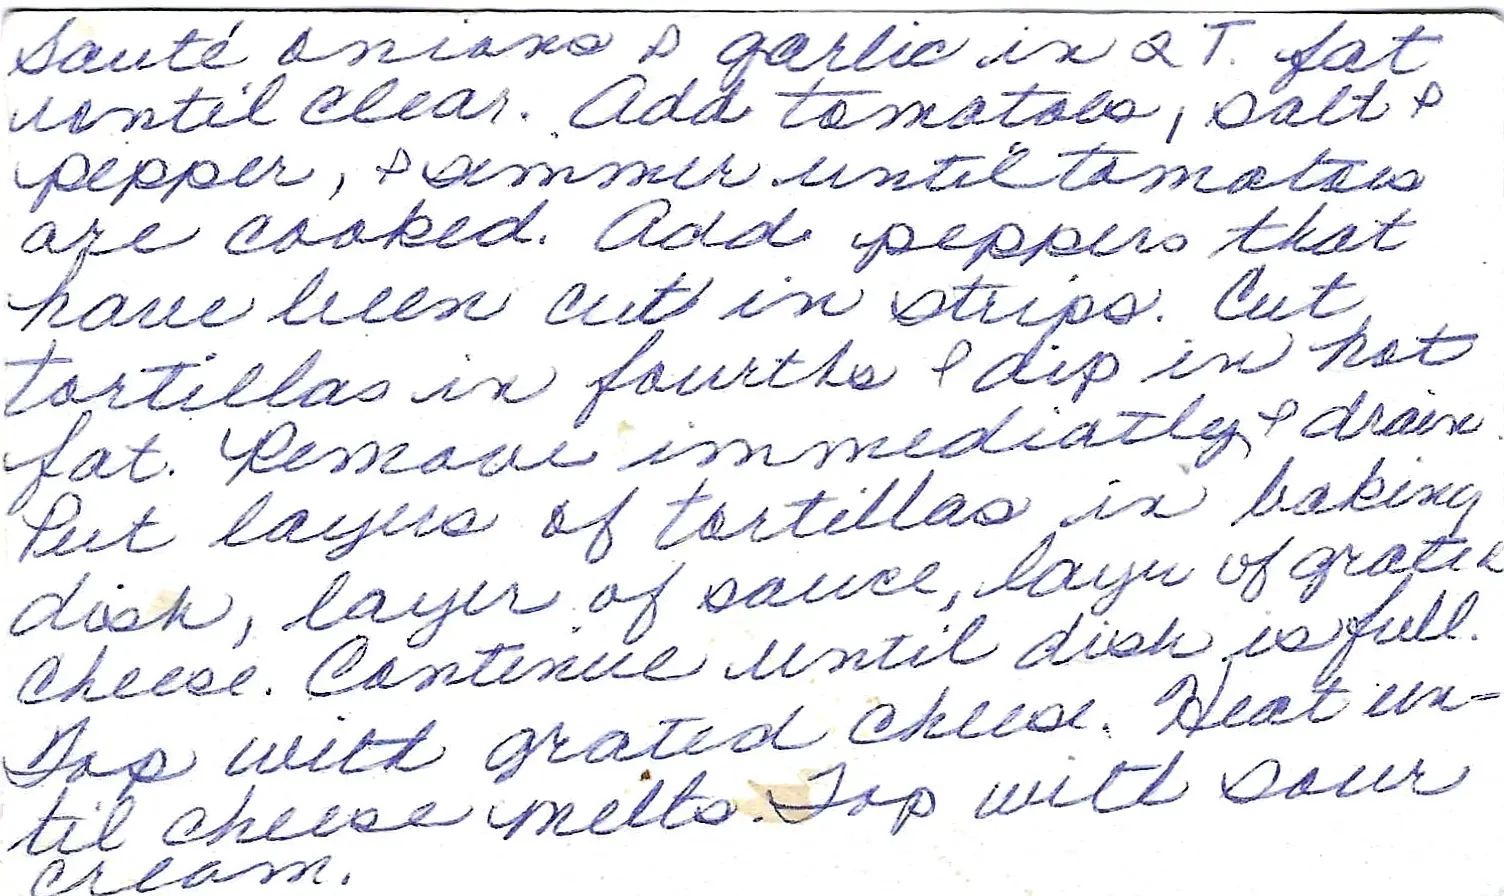 Sauté onions & garlic in 2 T. fat
until clear. Add tomatoes, salt &
pepper, & simmer until tomatoes
are cooked. Add peppers that
have been cut in strips. Cut
tortillas in fourths & dip in hot
fat. Remove immediatly & drain.
Put layers of tortillas in baking
dish, layer of sauce, layer of grated
cheese. Continue until dish is full.
Top with grated cheese. Heat un-
til cheese melts. Top with sour
cream.